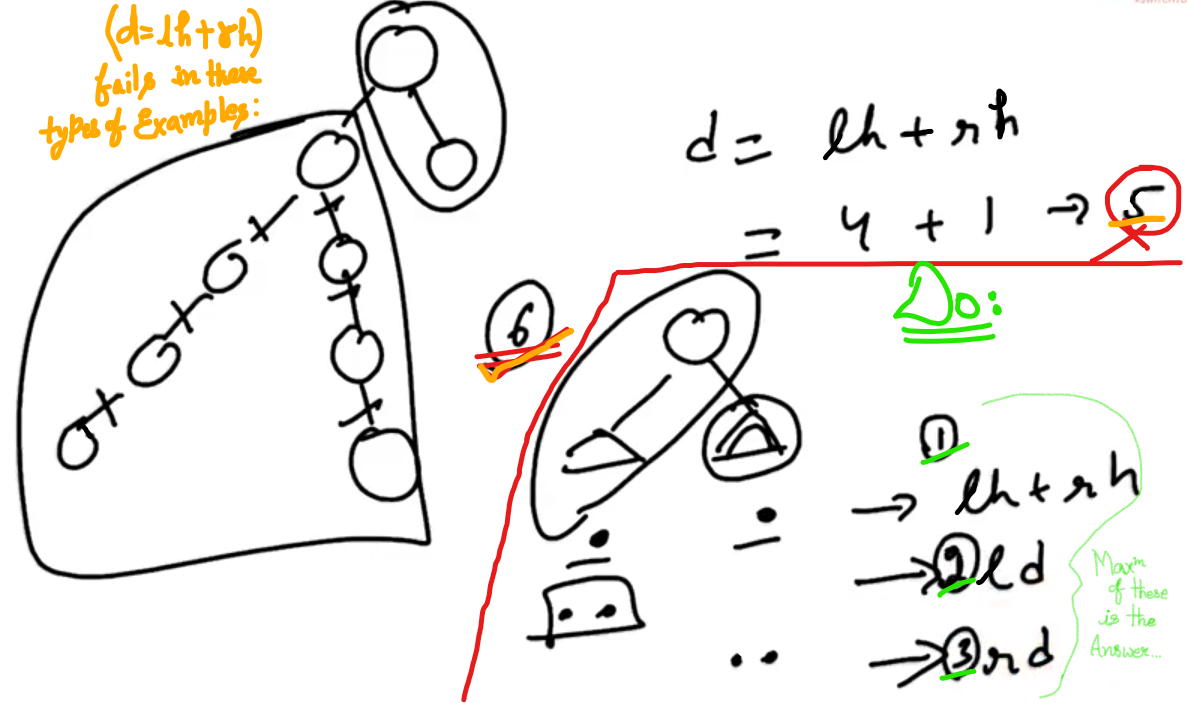 (d=lh+rh)
fails in these
types of Examples:
d = lh + rh
= 4 + 1 → 5
6
Do:
①
→ lh + rh
→ ② ld
→ ③ rd
Maxᵐ
of these
is the
Answer...